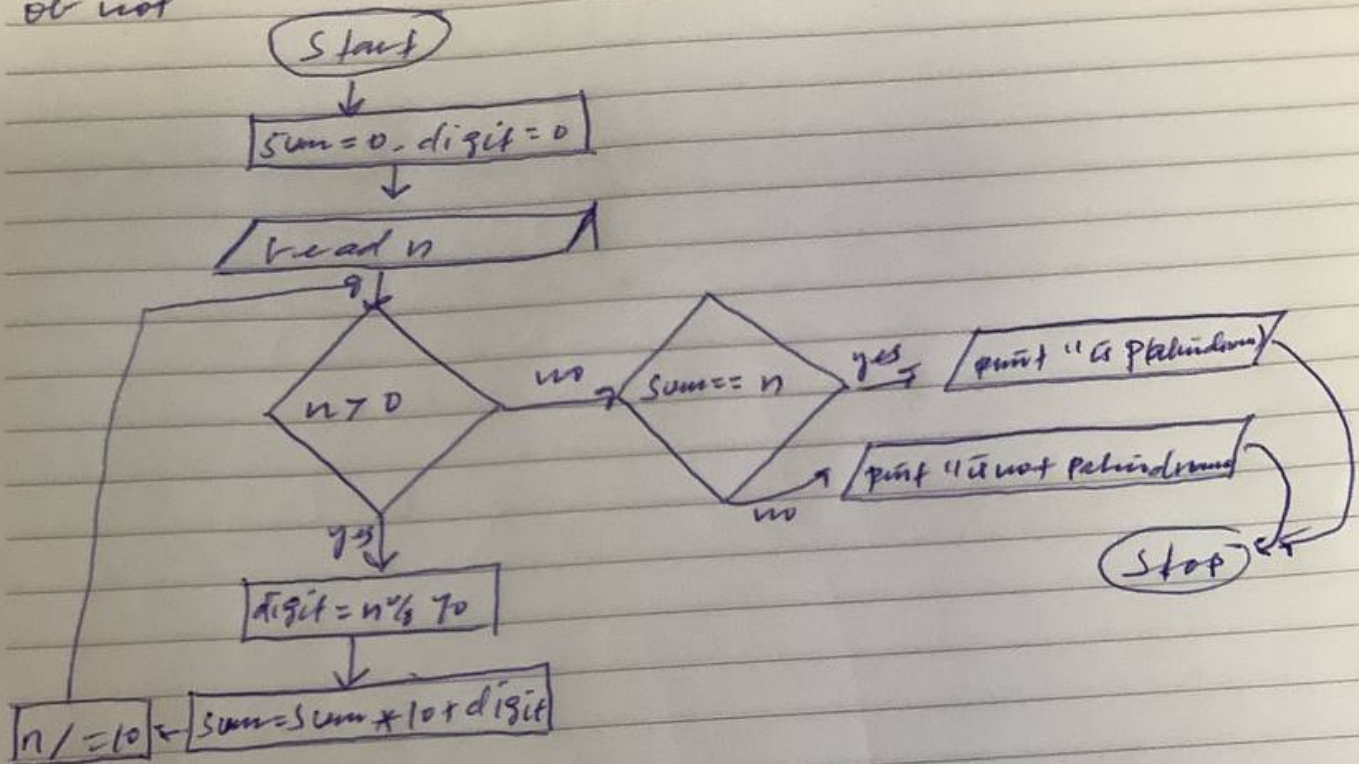 or not
Start
sum=0, digit=0
read n
n > 0
no
sum== n
yes
print "is
no
print "is not
Stop
yes
digit = n% 10
sum=sum * 10+ digit
n / =10